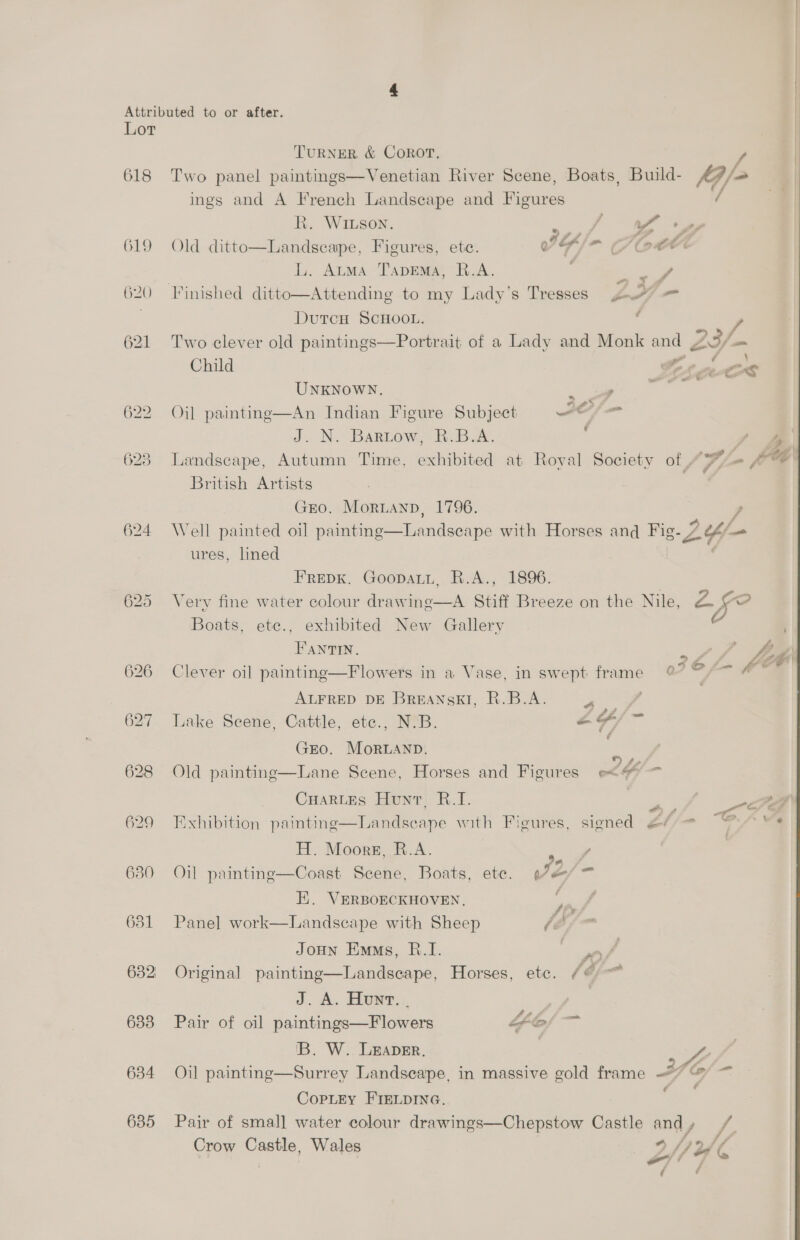 4
Attributed to or after.
Lot
TURNER & COROT.
618 Two panel paintings—Venetian River Scene, Boats, Build-
ings and A French Landscape and Figures
R. WILSON.
619 Old ditto—Landscape, Figures, etc.
L. ALMA TADEMA, R.A.
620 Finished ditto—Attending to my Lady's Tresses
DUTCH SCHOOL.
621 Two clever old paintings—Portrait of a Lady and Monk and 23/-
Child
UNKNOWN.
622 Oil painting—An Indian Figure Subject
J. N. BARLOW, R.B.A.
623 Landscape, Autumn Time, exhibited at Royal Society of
British Artists
GEO. MORLAND, 1796.
624 Well painted oil painting—Landscape with Horses and Fig-
ures, lined
FREDK. GOODALL, R.A., 1896.
625 Very fine water colour drawing—A Stiff Breeze on the Nile,
Boats, etc., exhibited New Gallery
FANTIN.
626 Clever oil painting—Flowers in a Vase, in swept frame
ALFRED DE BREANSKI, R.B.A.
627 Lake Scene, Cattle, etc., N.B.
GEO. MORLAND.
628 Old painting—Lane Scene, Horses and Figures
CHARLES HUNT, R.I.
629 Exhibition painting—Landscape with Figures, signed
H. MOORE, R.A.
630 Oil painting—Coast Scene, Boats, etc.
E. VERBOECKHOVEN.
631 Panel work—Landscape with Sheep
JOHN EMMS, R.I.
632 Original painting—Landscape, Horses, etc.
J. A. HUNT.
633 Pair of oil paintings—Flowers
B. W. LEADER.
634 Oil painting—Surrey Landscape, in massive gold frame
COPLEY FIELDING.
635 Pair of small water colour drawings—Chepstow Castle and
Crow Castle, Wales